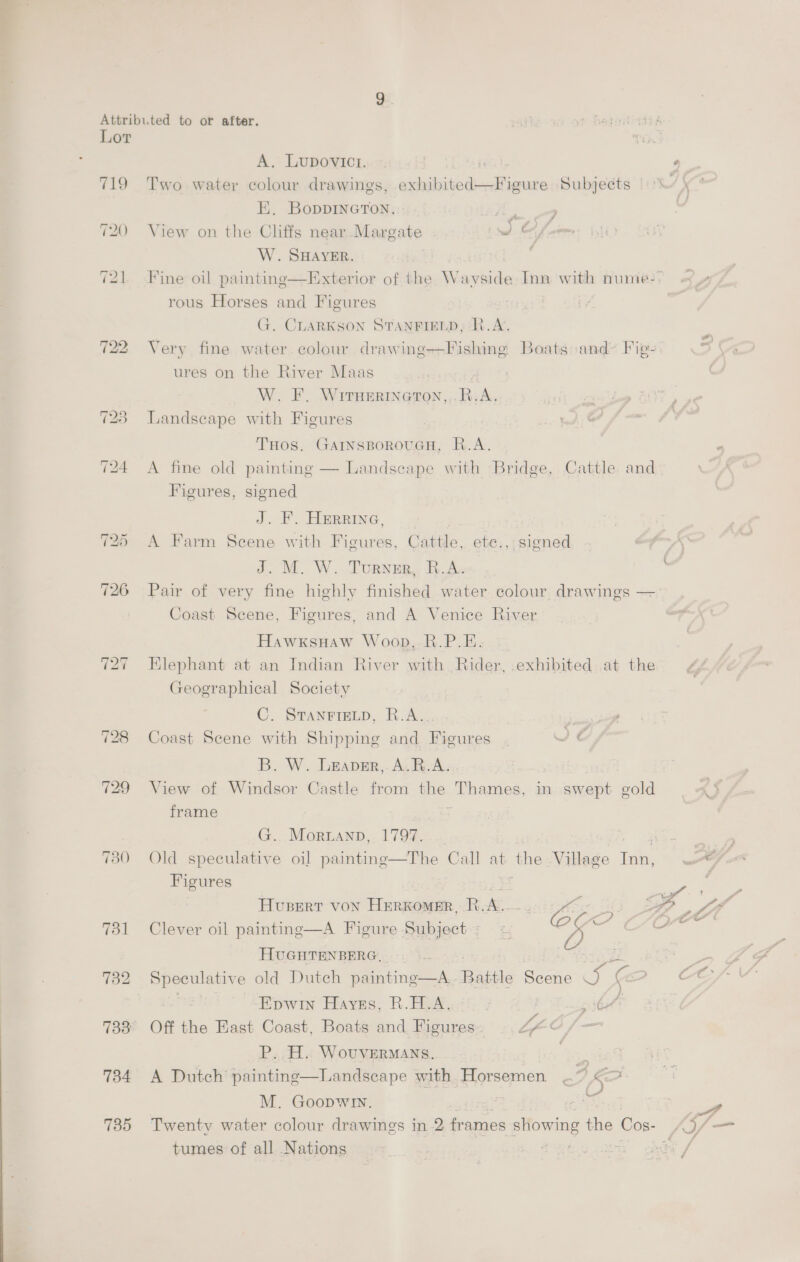 9
Attributed to or after.
Lot
A. Ludovici.
719 Two water colour drawings, exhibited—Figure Subjects
E. Boddington.
720 View on the Cliffs near Margate
W. Shayer.
721 Fine oil painting—Exterior of the Wayside Inn with nume-
rous Horses and Figures
G. Clarkson Stanfield, R.A.
722 Very fine water colour drawing—Fishing Boats and Fig-
ures on the River Maas
W. F. Witherington, R.A.
723 Landscape with Figures
Thos. Gainsborough, R.A.
724 A fine old painting — Landscape with Bridge, Cattle and
Figures, signed
J. F. Herring,
725 A Farm Scene with Figures, Cattle, etc., signed
J. M. W. Turner, R.A.
726 Pair of very fine highly finished water colour drawings —
Coast Scene, Figures, and A Venice River
Hawkshaw Wood, R.P.E.
727 Elephant at an Indian River with Rider, exhibited at the
Geographical Society
C. Stanfield, R.A.
728 Coast Scene with Shipping and Figures
B. W. Leader, A.R.A.
729 View of Windsor Castle from the Thames, in swept gold
frame
G. Morland, 1797.
730 Old speculative oil painting—The Call at the Village Inn,
Figures
Hubert von Herkomer, R.A.
731 Clever oil painting—A Figure Subject
Hughtenberg.
732 Speculative old Dutch painting—A Battle Scene
Edwin Hayes, R.H.A.
733 Off the East Coast, Boats and Figures
P. H. Wouvermans.
734 A Dutch painting—Landscape with Horsemen
M. Goodwin.
735 Twenty water colour drawings in 2 frames showing the Cos-
tumes of all Nations